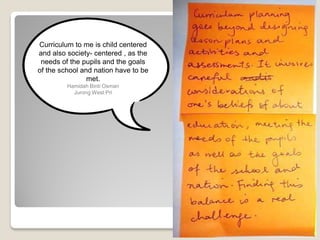 Curriculum to me is child centered
and also society- centered , as the
needs of the pupils and the goals
of the school and nation have to be
met.
Hamidah Binti Osman
Juning West Pri
Curriculum planning
goes beyond designing
lesson plans and
activities and
assessments. It involves
careful
considerations of
one's beliefs about
education, meeting the
needs of the pupils
as well as the goals
of the school and
nation. Finding this
balance is a real
challenge.